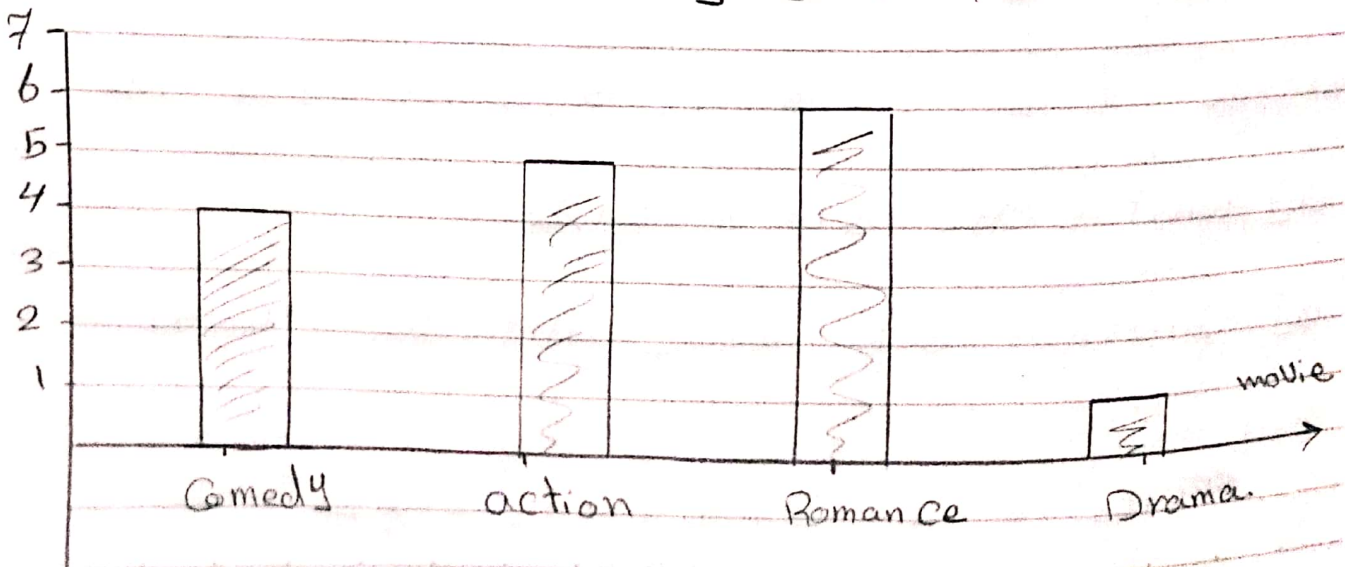 7
6
5
4
3
2
1
movie
Comedy
action
Romance
Drama.